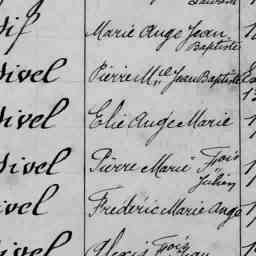 Marie Ange Jean
Baptiste
ivel Pierre M^ie Jean Baptiste
ivel Elie Ange Marie
ivel Pierre Marie Fçois
Julien
ivel Frédéric Marie Ange
ivel Alexis Fçois